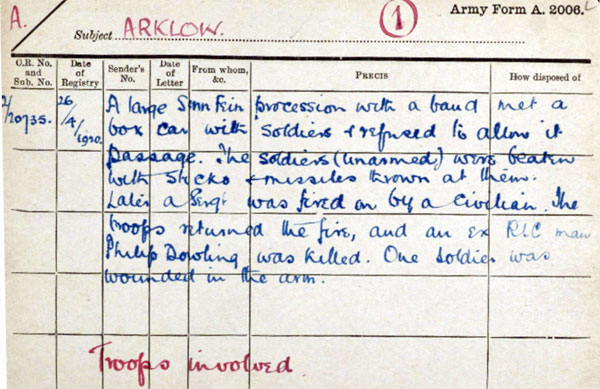 A.
1
Army Form A. 2006.
Subject ARKLOW.
O.R. No. and Sub. No.
Date of Registry
Sender's No.
Date of Letter
From whom, &c.
PRECIS
How disposed of
2/20735.
26/4/1920.
A large Sinn Fein procession with a band met a
box car with soldiers & refused to allow it
passage. The soldiers (unarmed) were beaten
with sticks & missiles thrown at them.
Later a Sergt was fired on by a civilian. The
troops returned the fire, and an ex RIC man
Philip Dowling was killed. One soldier was
wounded in the arm.
Troops involved